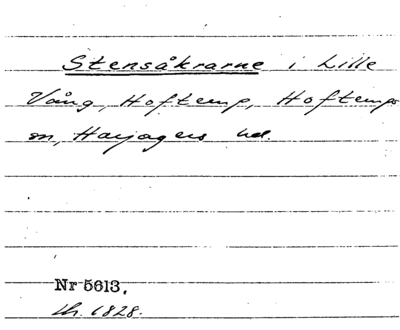 Stensåkrarne i Lille
Vång, Hoftemp, Hoftemps
sn, Harjagers hd.
Nr 5613.
Lh. 1828.